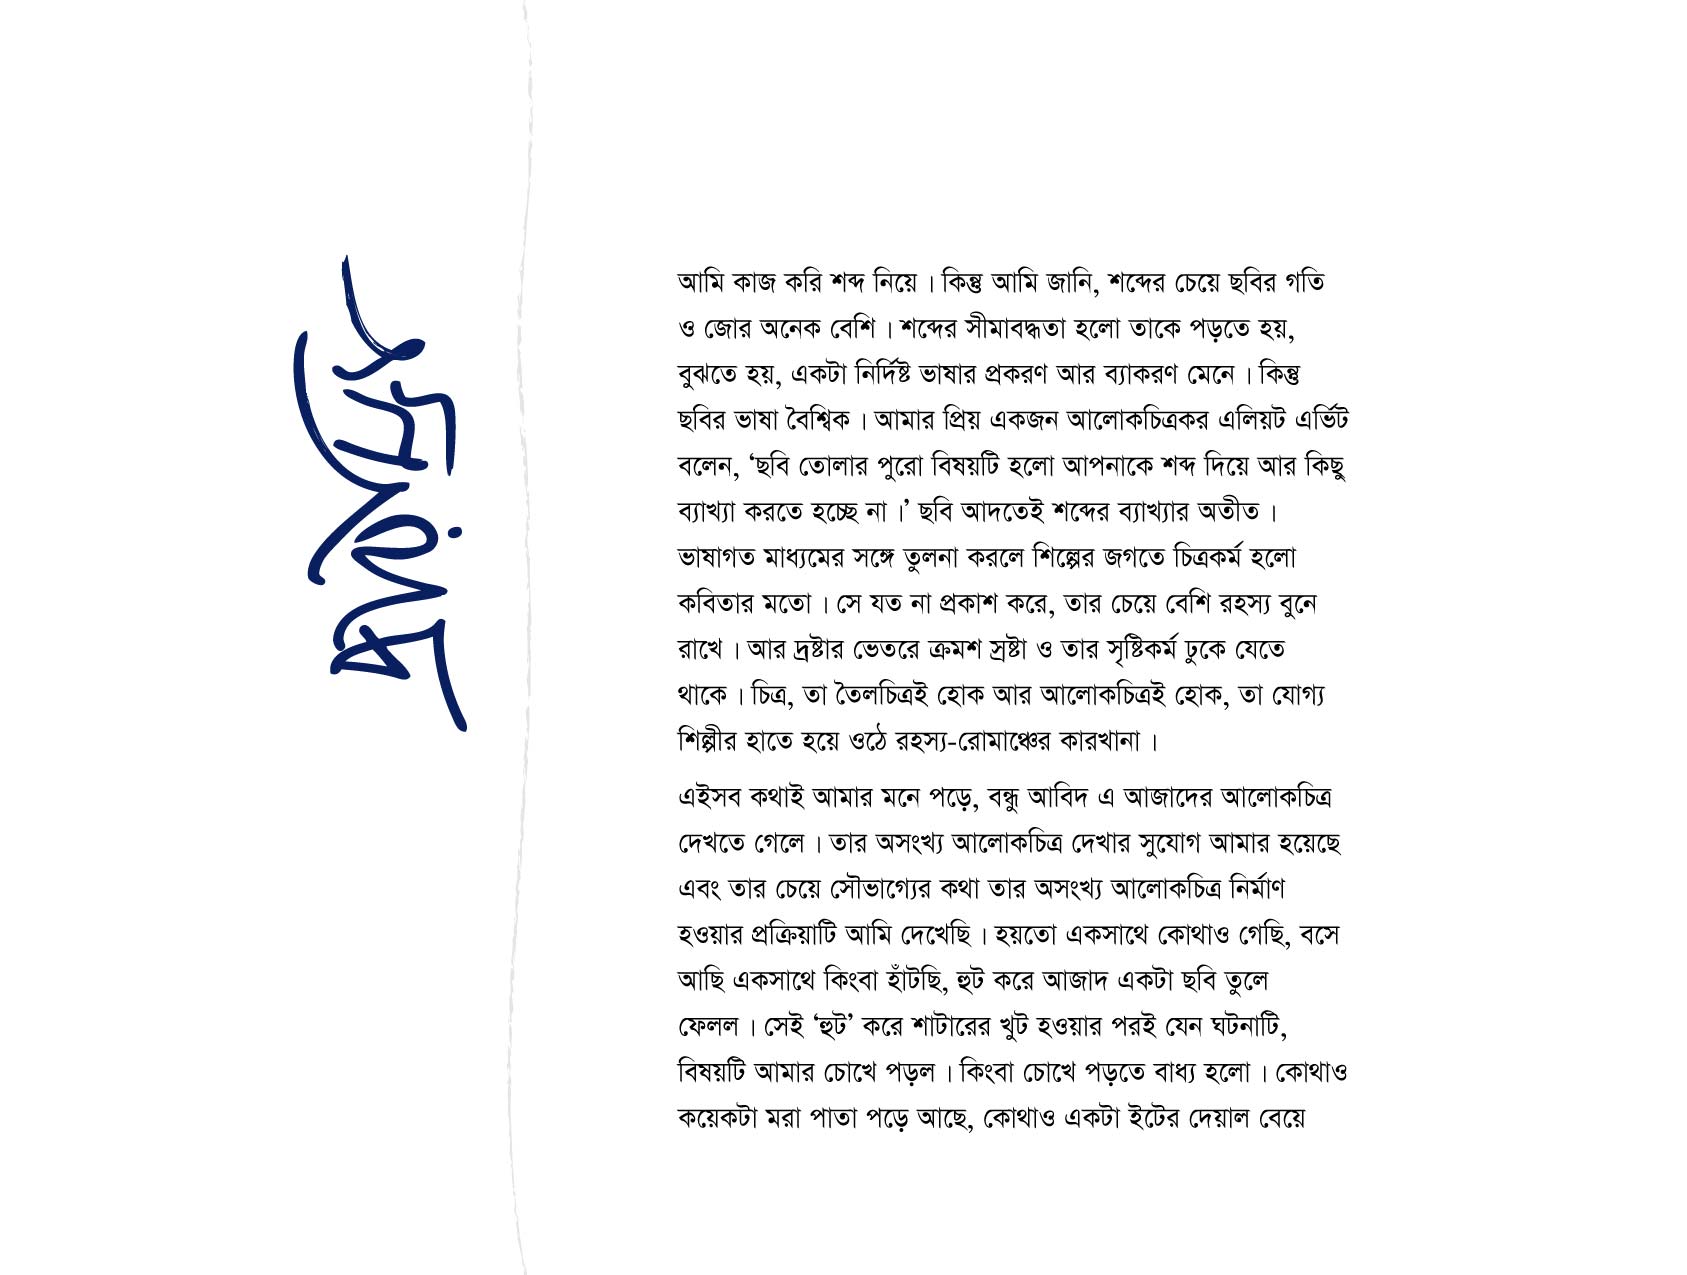 আমি কাজ করি শব্দ নিয়ে। কিন্তু আমি জানি, শব্দের চেয়ে ছবির গতি
ও জোর অনেক বেশি। শব্দের সীমাবদ্ধতা হলো তাকে পড়তে হয়,
বুঝতে হয়, একটা নির্দিষ্ট ভাষার প্রকরণ আর ব্যাকরণ মেনে। কিন্তু
ছবির ভাষা বৈশ্বিক। আমার প্রিয় একজন আলোকচিত্রকর এলিয়ট এর্ভিট
বলেন, ‘ছবি তোলার পুরো বিষয়টি হলো আপনাকে শব্দ দিয়ে আর কিছু
ব্যাখ্যা করতে হচ্ছে না।’ ছবি আদতেই শব্দের ব্যাখ্যার অতীত।
ভাষাগত মাধ্যমের সঙ্গে তুলনা করলে শিল্পের জগতে চিত্রকর্ম হলো
কবিতার মতো। সে যত না প্রকাশ করে, তার চেয়ে বেশি রহস্য বুনে
রাখে। আর দ্রষ্টার ভেতরে ক্রমশ স্রষ্টা ও তার সৃষ্টিকর্ম ঢুকে যেতে
থাকে। চিত্র, তা তৈলচিত্রই হোক আর আলোকচিত্রই হোক, তা যোগ্য
শিল্পীর হাতে হয়ে ওঠে রহস্য-রোমাঞ্চের কারখানা।
এইসব কথাই আমার মনে পড়ে, বন্ধু আবিদ এ আজাদের আলোকচিত্র
দেখতে গেলে। তার অসংখ্য আলোকচিত্র দেখার সুযোগ আমার হয়েছে
এবং তার চেয়ে সৌভাগ্যের কথা তার অসংখ্য আলোকচিত্র নির্মাণ
হওয়ার প্রক্রিয়াটি আমি দেখেছি। হয়তো একসাথে কোথাও গেছি, বসে
আছি একসাথে কিংবা হাঁটছি, হুট করে আজাদ একটা ছবি তুলে
ফেলল। সেই ‘হুট’ করে শাটারের খুট হওয়ার পরই যেন ঘটনাটি,
বিষয়টি আমার চোখে পড়ল। কিংবা চোখে পড়তে বাধ্য হলো। কোথাও
কয়েকটা মরা পাতা পড়ে আছে, কোথাও একটা ইটের দেয়াল বেয়ে